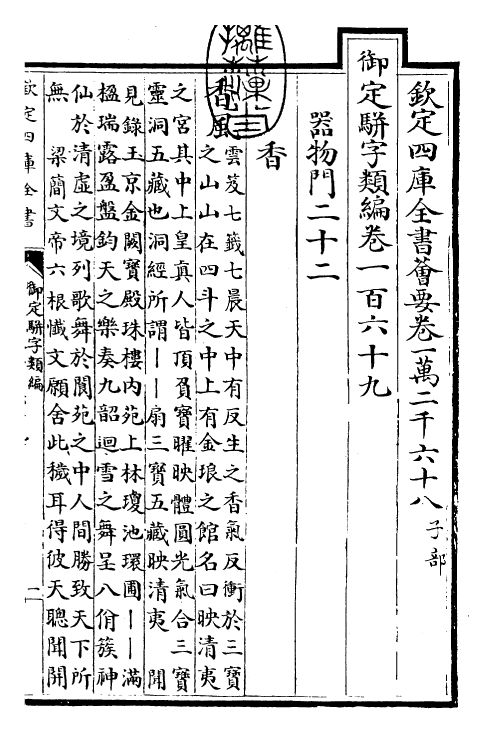 欽定四庫全書薈要卷一萬二千六十八 子部
御定駢字類編卷一百六十九
器物門二十二
香
香風 雲笈七籤七晨天中有反生之香氣反衝於三寶
之山山在四斗之中上有金琅之館名曰映清夷
之宮其中上皇真人皆頂負寶曜映體圓光氣合三寶
靈洞五藏也洞經所謂丨丨扇三寶五藏映清夷 開
見錄玉京金闕寶殿珠樓内苑上林瓊池環圃丨丨滿
楹瑞露盈盤鈞天之樂奏九韶迴雪之舞呈八佾簇神
仙於清虛之境列歌舞於閬苑之中人間勝致天下所
無 梁簡文帝六根懺文願舍此穢耳得彼天聰聞開
欽定四庫全書
御定駢字類編